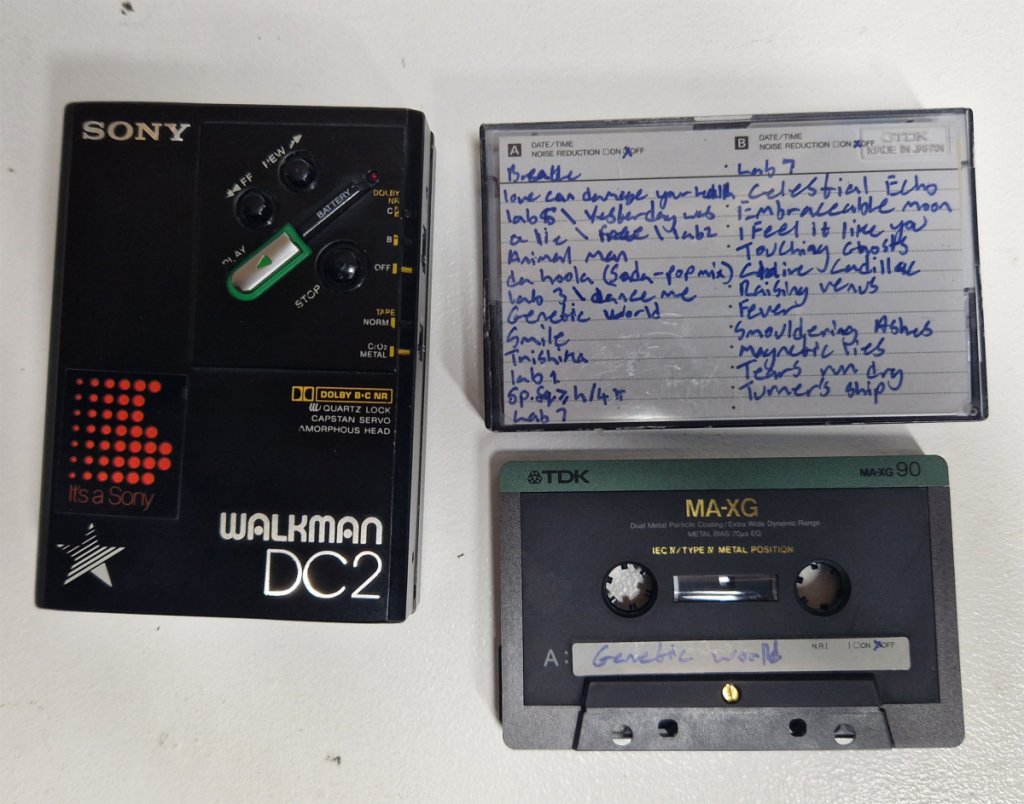 SONY
NEW
◀◀ FF
BATTERY
PLAY
STOP
DOLBY
NR
C
B
OFF
TAPE
NORM
CrO2
METAL
DOLBY B·C NR
QUARTZ LOCK
CAPSTAN SERVO
AMORPHOUS HEAD
It's a Sony
WALKMAN
DC2
A DATE/TIME
NOISE REDUCTION □ON □OFF
Breathe
love can damage your health
lab 5 \ Yesterday was
a lie \ free \ lab2
Animal man
da hoola (Soda-pop mix)
lab 3 \ dance me
Genetic World
Smile
Tnishika
lab 1
lab 7
B DATE/TIME
NOISE REDUCTION □ON □OFF
TDK
MADE IN JAPAN
Lab 7
Celestial Echo
Embraceable moon
I Feel it like you
Touching Ghosts
Cadillac
Raising venus
Fever
Smouldering Ashes
Magnetic Ties
Tears run dry
Turners ship
TDK
MA-XG 90
MA-XG
Dual Metal Particle Coating/Extra Wide Dynamic Range
METAL BIAS:70μs EQ
IEC IV/TYPE IV METAL POSITION
A:
Genetic World
N.R □ON □OFF